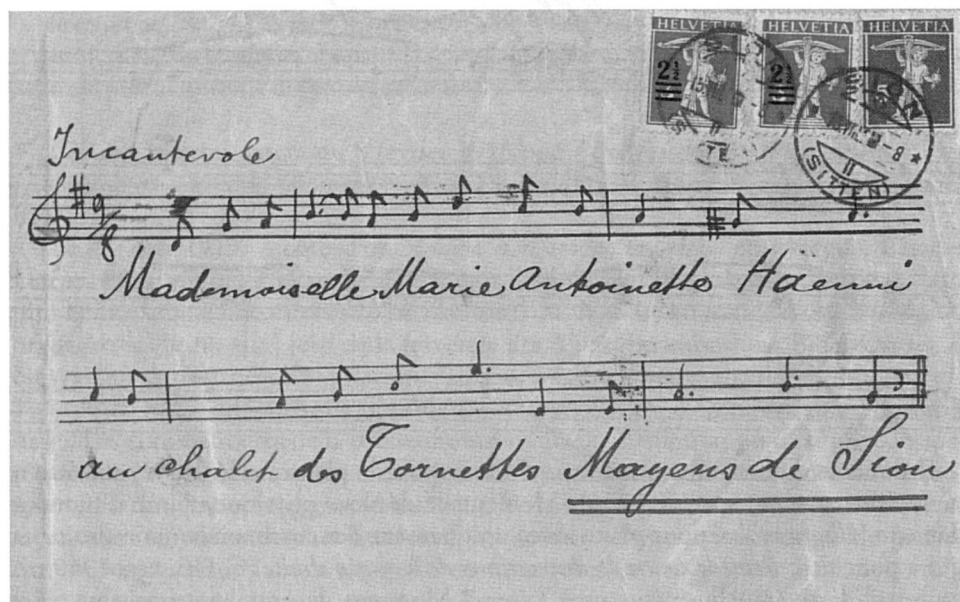 HELVETIA HELVETIA HELVETIA
2½ 2½
SION
(SITTEN)
Incantevole
9/8
Mademoiselle Marie Antoinette Haenni
au chalet des Cornettes Mayens de Sion